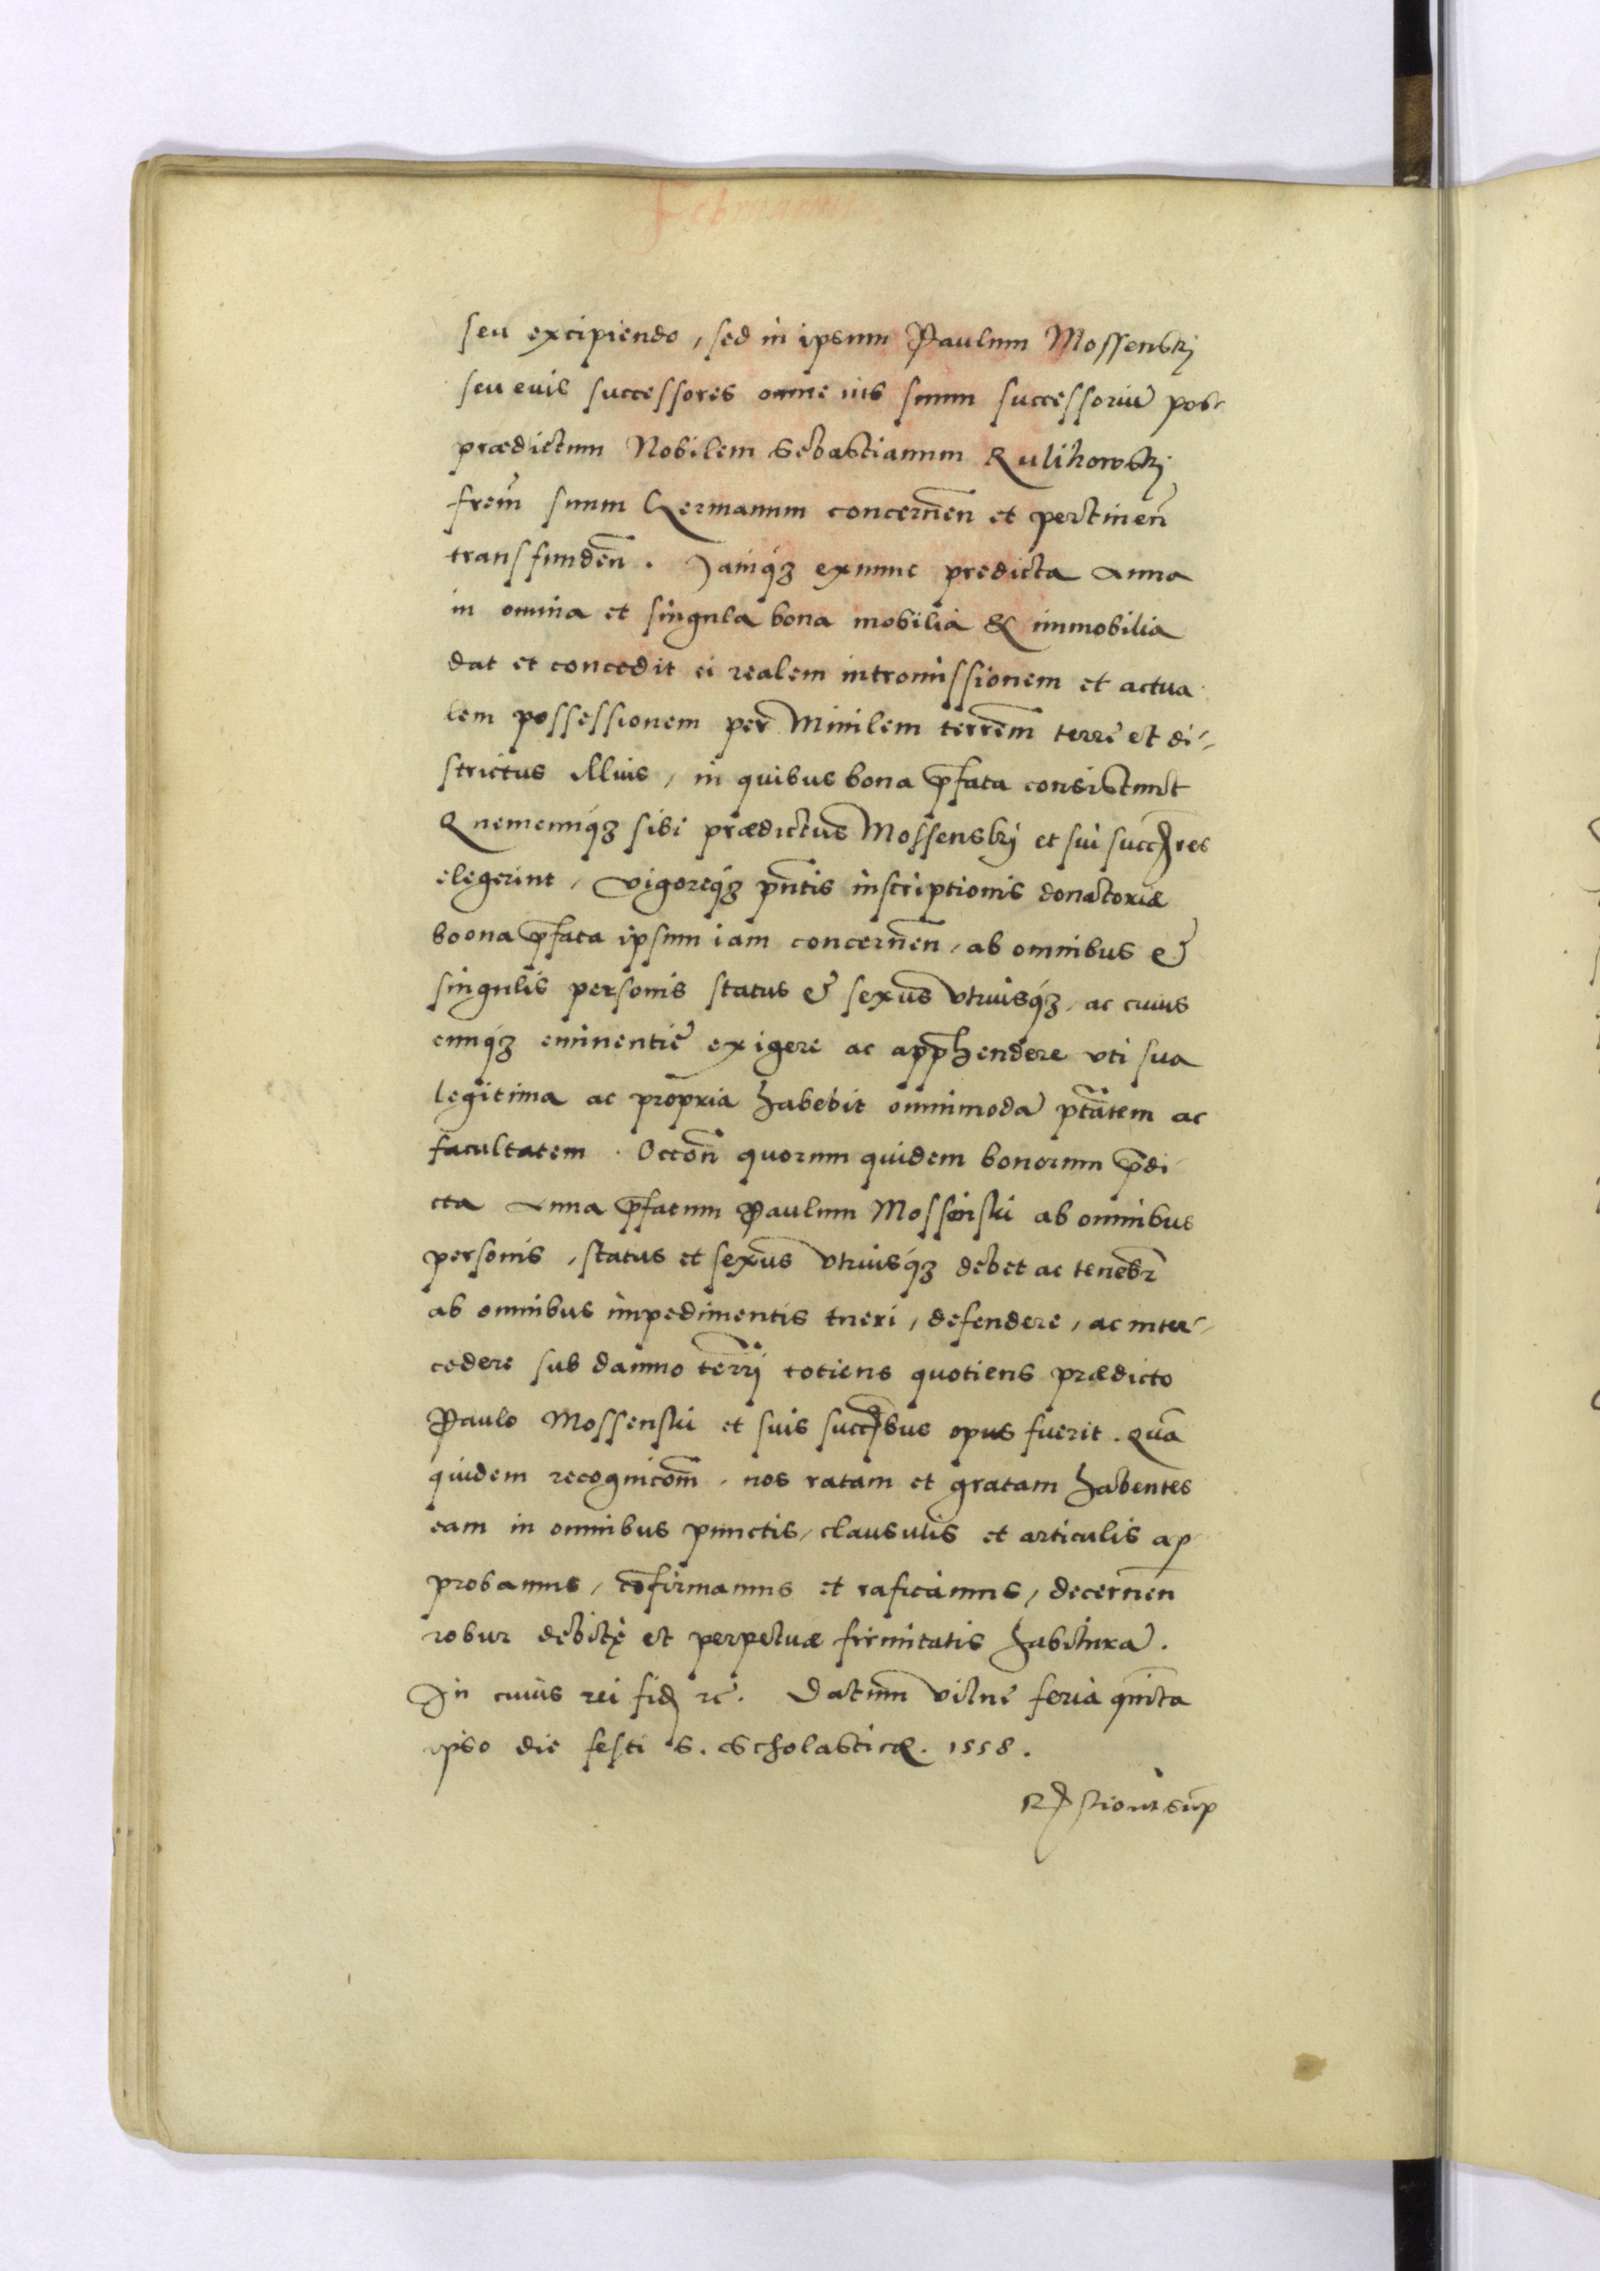 seu excipiendo, sed in ipsum Paulum Mossenskj
seu eius successores omne ius suum successoriũ post
prædictum Nobilem Sebastianum Rulikowskj
frem̃ suum Germanum concerneñ et pertineñ
transfundeñ. Iamq́ꝫ exnunc predicta Anna
in omnia et singula bona mobilia & immobilia
dat et concedit ei realem intromissionem et actua
lem possessionem per Minilem terrem̃ terrę et di-
strictus illius, in quibus bona p̃fata consistunt
Quemcunq́ꝫ sibi prædictus Mossenskj et sui succ̃res
elegerint, vigoreq́ꝫ pñtis inscriptionis donatoriæ
boona p̃fata ipsum iam concerneñ, ab omnibus &
singulis personis status & sexus vtriusq́ꝫ, ac cuius
cunq́ꝫ eminentię exigere ac app̃hendere vti sua
legitima ac propria habebit omnimodã ptãtem ac
facultatem. Occoñ quorum quidem bonorum p̃di
cta Anna p̃fatum Paulum Mossenski ab omnibus
personis, status et sexus vtriusq́ꝫ debet ac teneb̃r
ab omnibus impedimentis tueri, defendere, ac inter-
cedere sub damno terrj̃ totiens quotiens prædicto
Paulo Mossenski et suis succ̃bus opus fuerit. Quã
quidem recognicom̃, nos ratam et gratam habentes
eam in omnibus punctis, clausulis et articulis ap
probamus, cõfirmamus et raficamus, decerneñ
robur debitę et perpetuæ firmitatis habiturã.
In cuius rei fid ꝛc̃. Datum Vilnę feria quĩta
ipso die festi S. Scholasticæ. 1558.